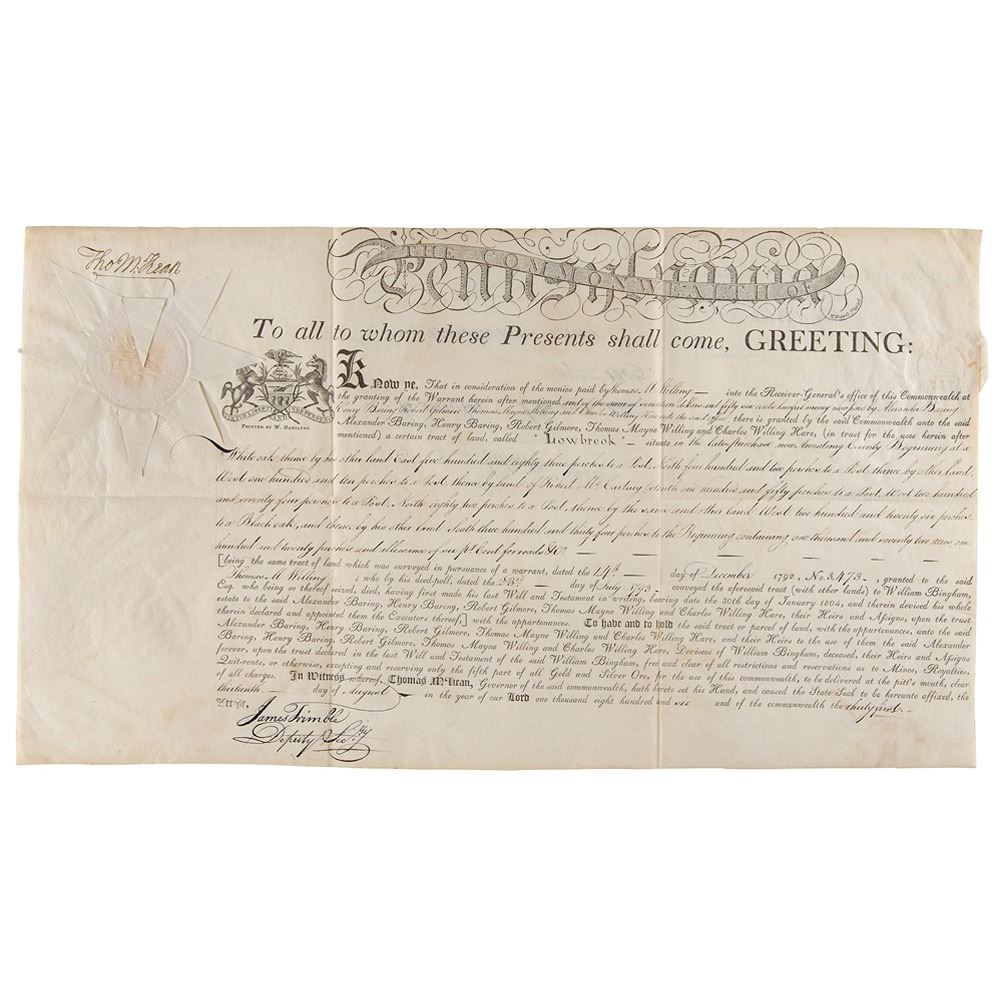 Tho M:Kean
THE COMMONWEALTH OF
Pennsylvania
To all to whom these Presents shall come, GREETING:
PRINTED BY W. HAMILTON.
Know ye, That in consideration of the monies paid by Thomas M Willing — into the Receiver-General's office of this Commonwealth at
the granting of the Warrant herein after mentioned, and of the sum of and fifty six cents lawful money paid by Alexander Baring
Henry Baring Robert Gilmore Thomas Mayne Willing and Charles Willing Hare into the said office, there is granted by the said Commonwealth unto the said
Alexander Baring, Henry Baring, Robert Gilmore, Thomas Mayne Willing and Charles Willing Hare, (in trust for the uses herein after
mentioned) a certain tract of land, called "Lowbrook" — situate in the late purchase now County Beginning at a
White oak thence by his other land East five hundred and eighty three perches to a Post, North four hundred and two perches to a Post thence by other land
West one hundred and ten perches to a Post, thence by land of Robert McCartney South one hundred and fifty perches to a Post, West two hundred
and seventy four perches to a Post, North eighty two perches to a Post, thence by the same and other land West two hundred and twenty six perches
to a Black oak, and thence by his other land South three hundred and thirty four perches to the Beginning containing one thousand and seventy two acres one
hundred and twenty perches and allowance of six p Cent for roads &c
[being the same tract of land which was surveyed in pursuance of a warrant, dated the 14th — day of December 1792, No. 3473 -, granted to the said
Thomas M Willing ; who by his deed-poll, dated the 23d — day of July 1793 — conveyed the aforesaid tract (with other lands) to William Bingham,
Esq. who being so thereof seized, died, having first made his last Will and Testament in writing, bearing date the 30th day of January 1804, and therein devised his whole
estate to the said Alexander Baring, Henry Baring, Robert Gilmore, Thomas Mayne Willing and Charles Willing Hare, their Heirs and Assigns, upon the trust
therein declared and appointed them the Executors thereof,] with the appurtenances. To have and to hold the said tract or parcel of land, with the appurtenances, unto the said
Alexander Baring, Henry Baring, Robert Gilmore, Thomas Mayne Willing and Charles Willing Hare, and their Heirs to the use of them the said Alexander
Baring, Henry Baring, Robert Gilmore, Thomas Mayne Willing and Charles Willing Hare, Devisees of William Bingham, deceased, their Heirs and Assigns
forever, upon the trust declared in the last Will and Testament of the said William Bingham, free and clear of all restrictions and reservations as to Mines, Royalties,
Quit-rents, or otherwise, excepting and reserving only the fifth part of all Gold and Silver Ore, for the use of this commonwealth, to be delivered at the pitt's mouth, clear
of all charges. In Witness whereof, Thomas M'Kean, Governor of the said commonwealth, hath hereto set his Hand, and caused the State Seal to be hereunto affixed, the
thirteenth — day of August — in the year of our Lord one thousand eight hundred and six — and of the commonwealth the thirty first. —
Attest,
James Trimble
Deputy Secry